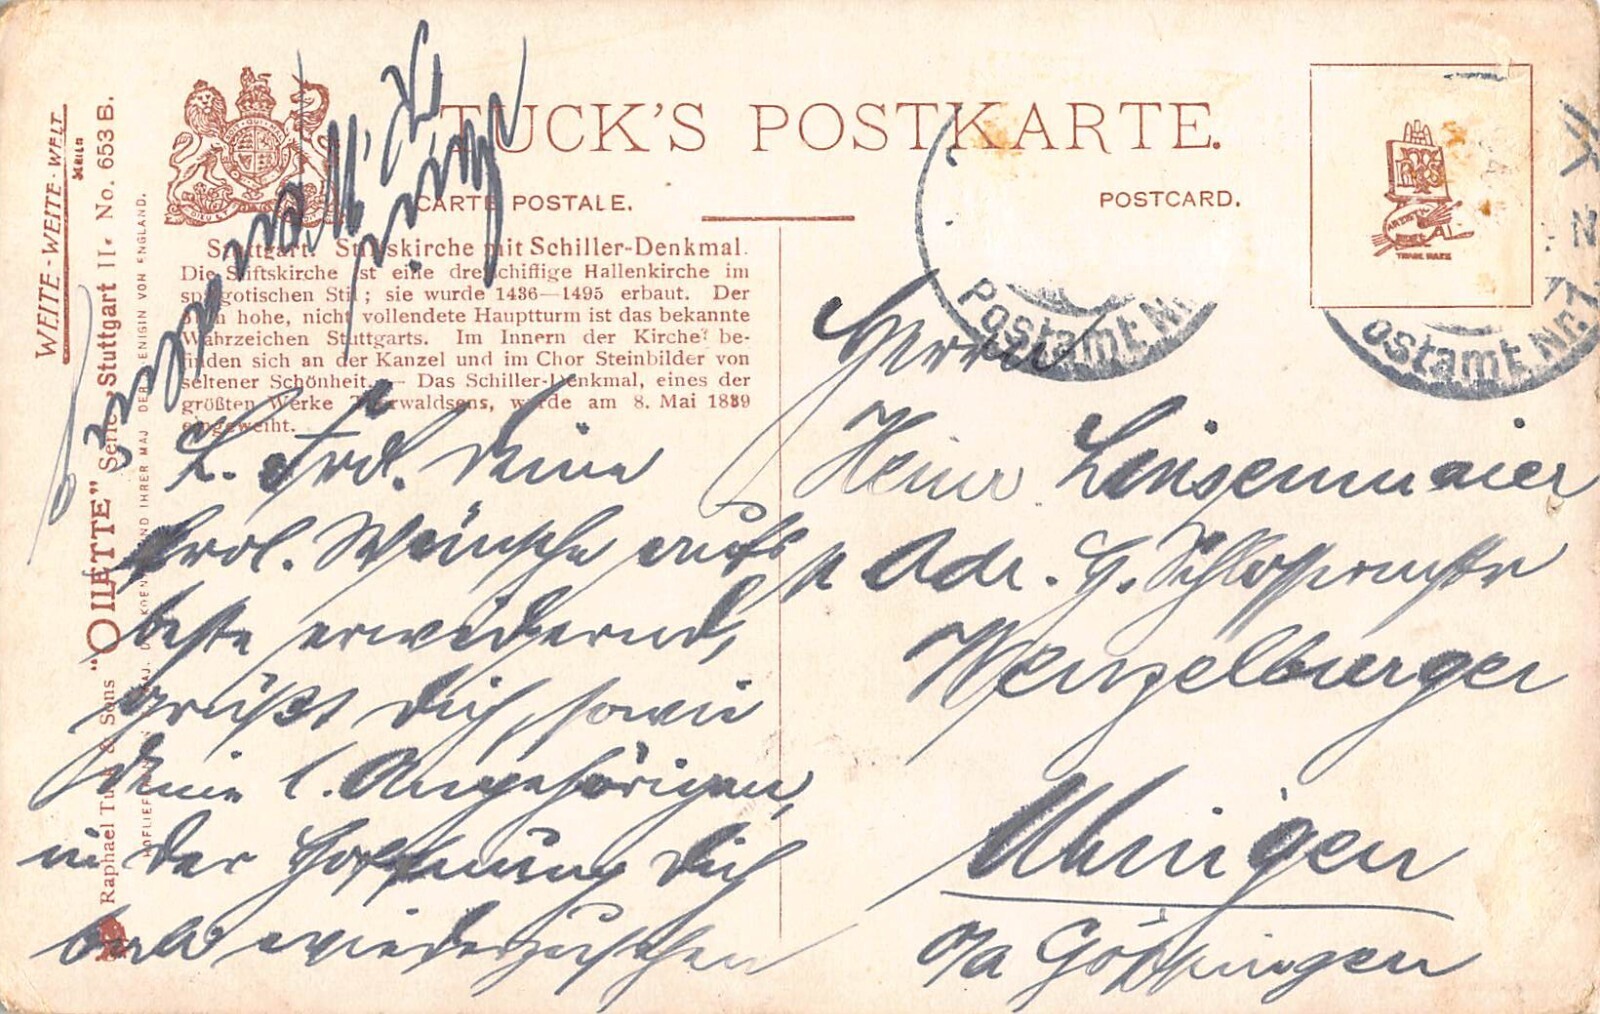 TUCK'S POSTKARTE.
CARTE POSTALE.
POSTCARD.
Stuttgart. Stiftskirche mit Schiller-Denkmal.
Die Stiftskirche ist eine dreischiffige Hallenkirche im
spätgotischen Stil; sie wurde 1436—1495 erbaut. Der
hohe, nicht vollendete Hauptturm ist das bekannte
Wahrzeichen Stuttgarts. Im Innern der Kirche be-
finden sich an der Kanzel und im Chor Steinbilder von
seltener Schönheit. — Das Schiller-Denkmal, eines der
größten Werke Thorwaldsens, wurde am 8. Mai 1839
eingeweiht.
WEITE - WEITE - WELT
Raphael Tuck & Sons "OILETTE" Serie Stuttgart II. No. 653 B.
HOFLIEFERANTEN MAJ. D. KOENIGS UND IHRER MAJ DER KOENIGIN VON ENGLAND.
TRADE MARK
Postamt Nr.
Postamt Nr.
L. Deine
frdl. Wünsche aufs
beste erwidernd,
grüßt Dich, sowie
Deine l. Angehörigen,
in der Hoffnung Dich
bald wiederzusehen
Herrn
Heinr Linsenmaier
p Adr. H. Schloß
Wenzelburger
Uhingen
o/a Göppingen